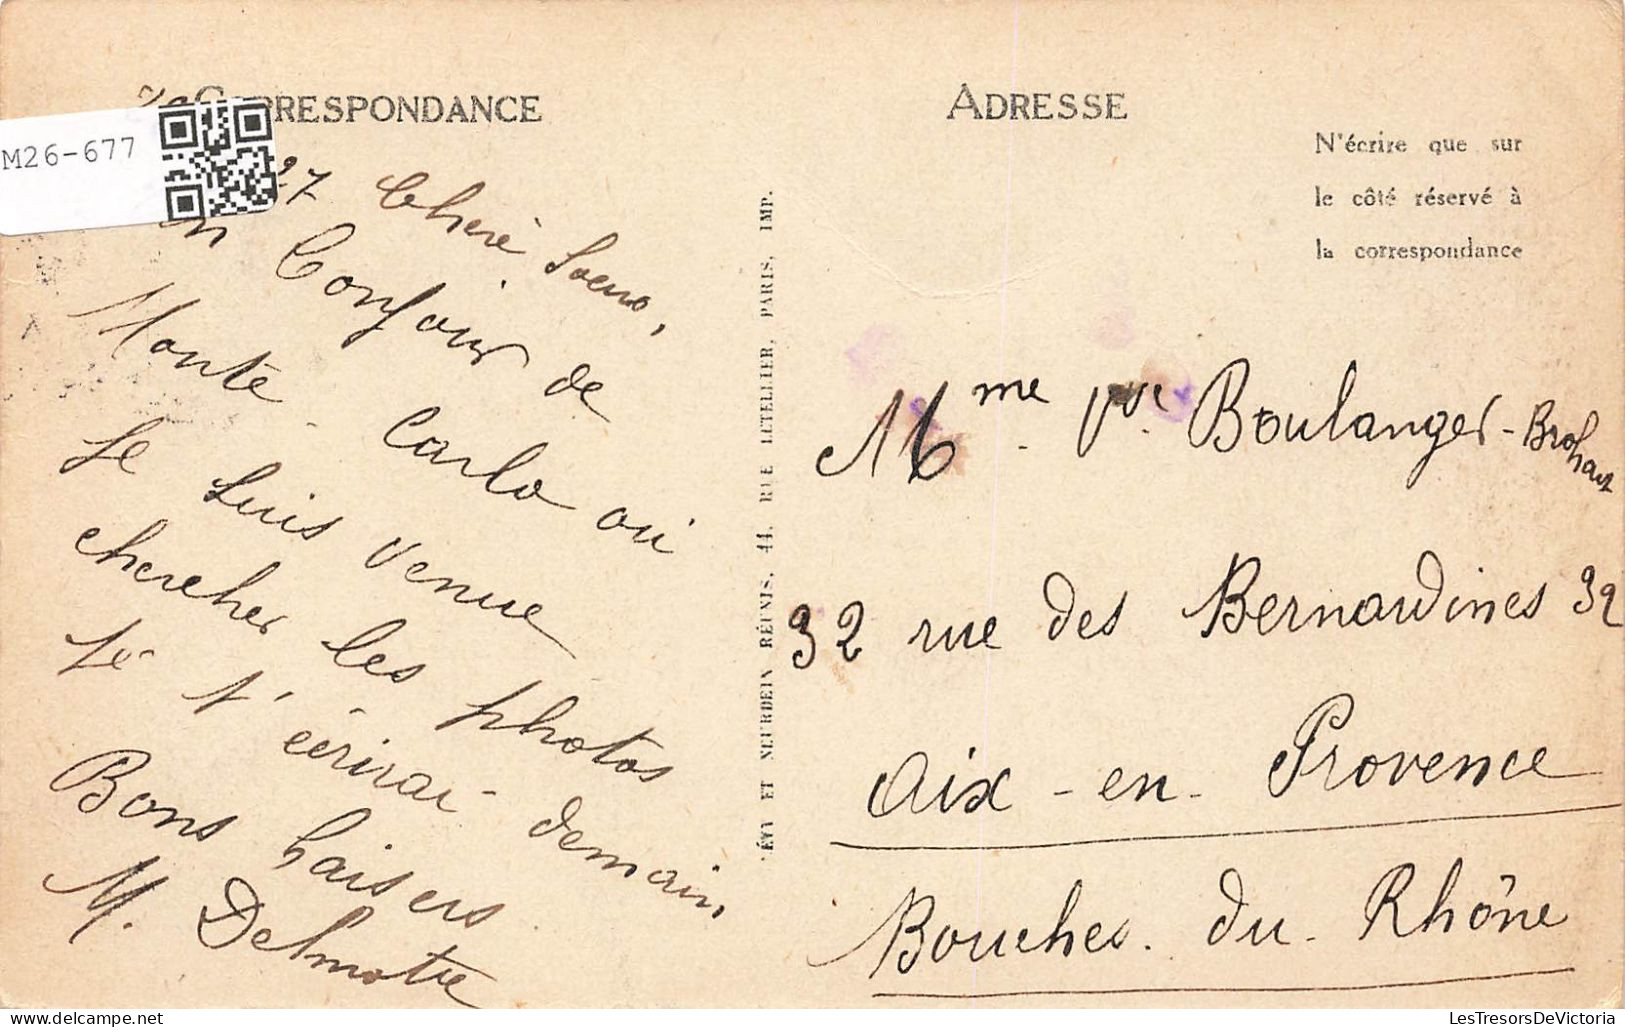 CORRESPONDANCE
M26-677
27 Cherè Soeur,
Bonjour de
Monte-Carlo où
Je suis venue
chercher les photos
Je t'écrirai demain
Bons baisers
M. Delmotre
ÉVY ET NEURDEIN RÉUNIS, 44, RUE LETELLIER, PARIS, IMP.
ADRESSE
N'écrire que sur
le côté réservé à
la correspondance
Mme Vve Boulanger-Brohart
32 rue des Bernardines 32
Aix-en-Provence
Bouches-du-Rhône
LesTresorsDeVictoria
delcampe.net